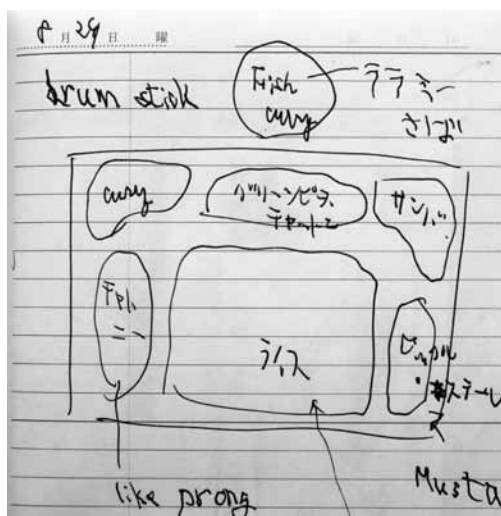 8月29日 曜
drum stick
Fish
curry
ララミー
さば
curry
グリーンピース
チャットニ
サンバ
チャト
ニー
ライス
ピックル
ステール
like prong
Musta